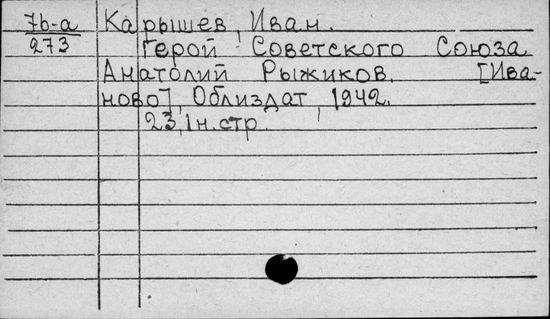 7б-а Карышев, Иван.
273 Герой Советского Союза
Анатолий Рыжиков. [Ива-
ново], Облиздат, 1942.
23, 1 н. стр.